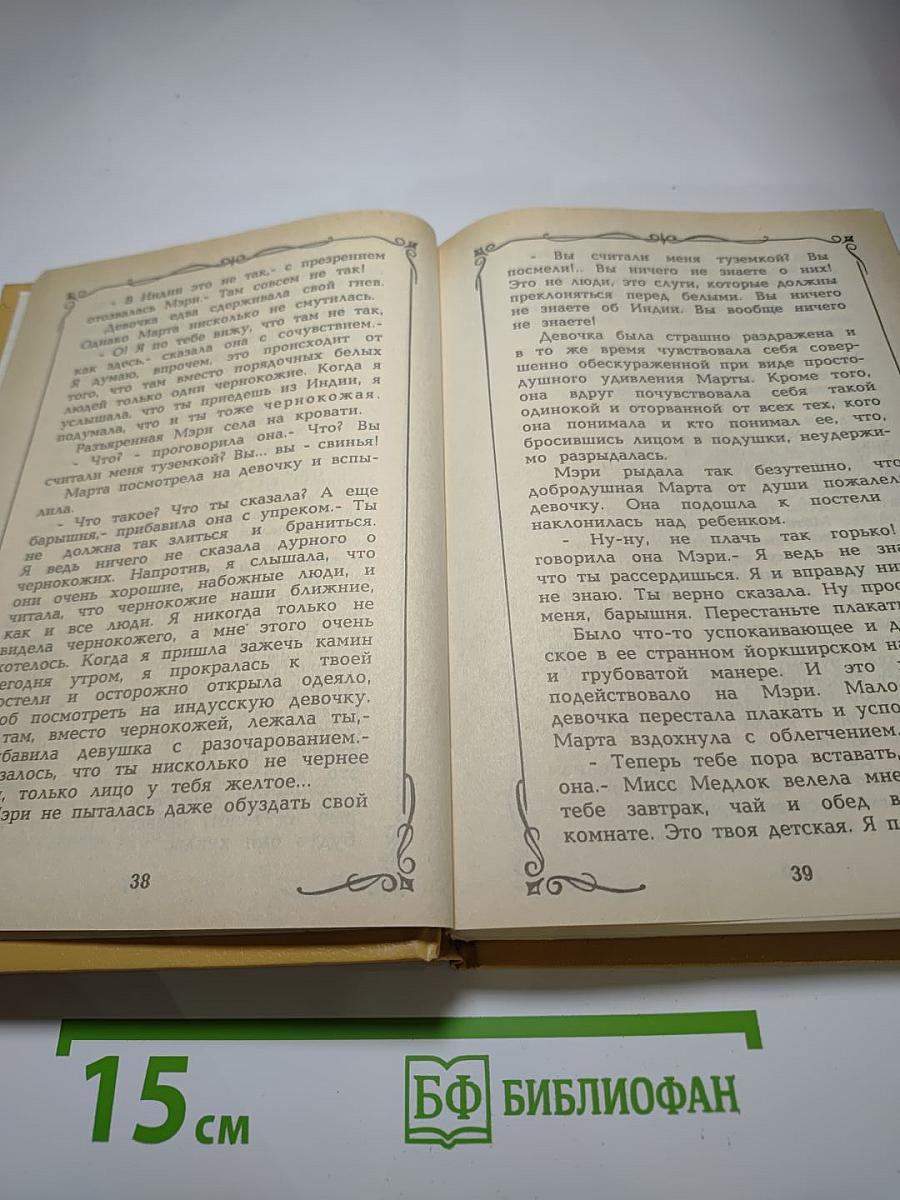 - В Индии это не так,- с презрением
отозвалась Мэри.- Там совсем не так!
Девочка едва сдерживала свой гнев.
Однако Марта нисколько не смутилась.
- О! Я по тебе вижу, что там не так,
как здесь,- сказала она с сочувствием.-
Я думаю, впрочем, это происходит от
того, что там вместо порядочных белых
людей только одни чернокожие. Когда я
услышала, что ты приедешь из Индии, я
подумала, что и ты тоже чернокожая.
Разъяренная Мэри села на кровати.
- Что? - проговорила она.- Что? Вы
считали меня туземкой? Вы... вы - свинья!
Марта посмотрела на девочку и вспы-
лила.
- Что такое? Что ты сказала? А еще
барышня,- прибавила она с упреком.- Ты
не должна так злиться и браниться.
Я ведь ничего не сказала дурного о
чернокожих. Напротив, я слышала, что
они очень хорошие, набожные люди, и
читала, что чернокожие наши ближние,
как и все люди. Я никогда только не
видела чернокожего, а мне этого очень
хотелось. Когда я пришла зажечь камин
сегодня утром, я прокралась к твоей
остели и осторожно открыла одеяло,
об посмотреть на индусскую девочку.
там, вместо чернокожей, лежала ты,-
бавила девушка с разочарованием.-
залось, что ты нисколько не чернее
, только лицо у тебя желтое...
Мэри не пыталась даже обуздать свой
38
- Вы считали меня туземкой? Вы
посмели!.. Вы ничего не знаете о них!
Это не люди, это слуги, которые должны
преклоняться перед белыми. Вы ничего
не знаете об Индии. Вы вообще ничего
не знаете!
Девочка была страшно раздражена и
в то же время чувствовала себя совер-
шенно обескураженной при виде просто-
душного удивления Марты. Кроме того,
она вдруг почувствовала себя такой
одинокой и оторванной от всех тех, кого
она понимала и кто понимал ее, что,
бросившись лицом в подушки, неудержи-
мо разрыдалась.
Мэри рыдала так безутешно, что
добродушная Марта от души пожалел
девочку. Она подошла к постели
наклонилась над ребенком.
- Ну-ну, не плачь так горько!
говорила она Мэри.- Я ведь не зна
что ты рассердишься. Я и вправду ни
не знаю. Ты верно сказала. Ну прос
меня, барышня. Перестаньте плакат
Было что-то успокаивающее и д
ское в ее странном йоркширском на
и грубоватой манере. И это
подействовало на Мэри. Мало
девочка перестала плакать и успо
Марта вздохнула с облегчением.
- Теперь тебе пора вставать,
она.- Мисс Медлок велела мне
тебе завтрак, чай и обед в
комнате. Это твоя детская. Я п
39
15 см
БФ БИБЛИОФАН